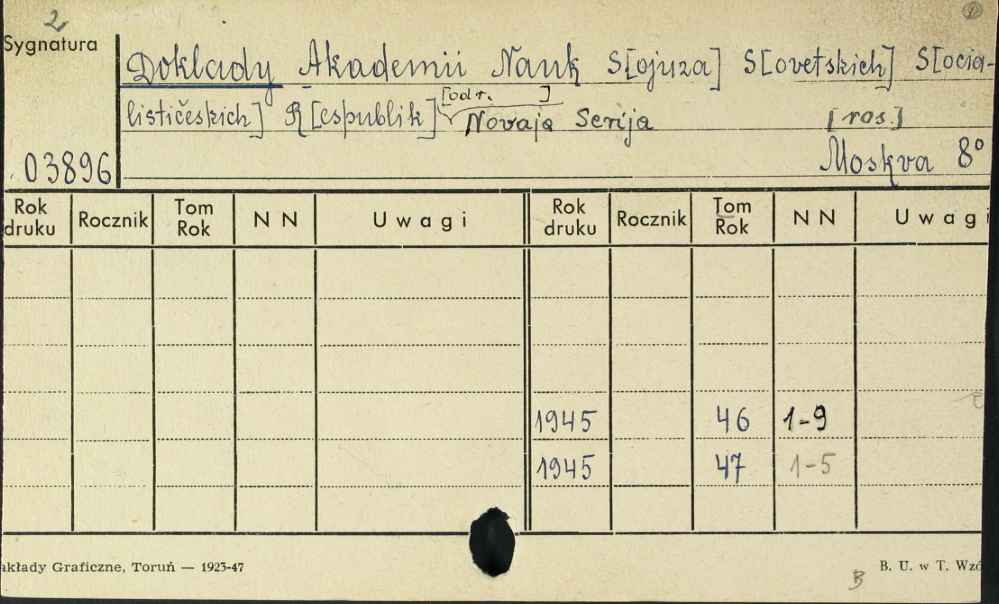 2
Sygnatura
Doklady Akademii Nauk S[ojuza] S[ovetskich] S[ocia-
listíčeskich] R[espublik] [odr. ] Novaja Serija [ros.]
03896
Moskva 8°
Rok druku Rocznik Tom Rok NN Uwagi Rok druku Rocznik Tom Rok NN Uwagi
1945 46 1-9
1945 47 1-5
akłady Graficzne, Toruń — 1923-47
B. U. w T. Wzó
B